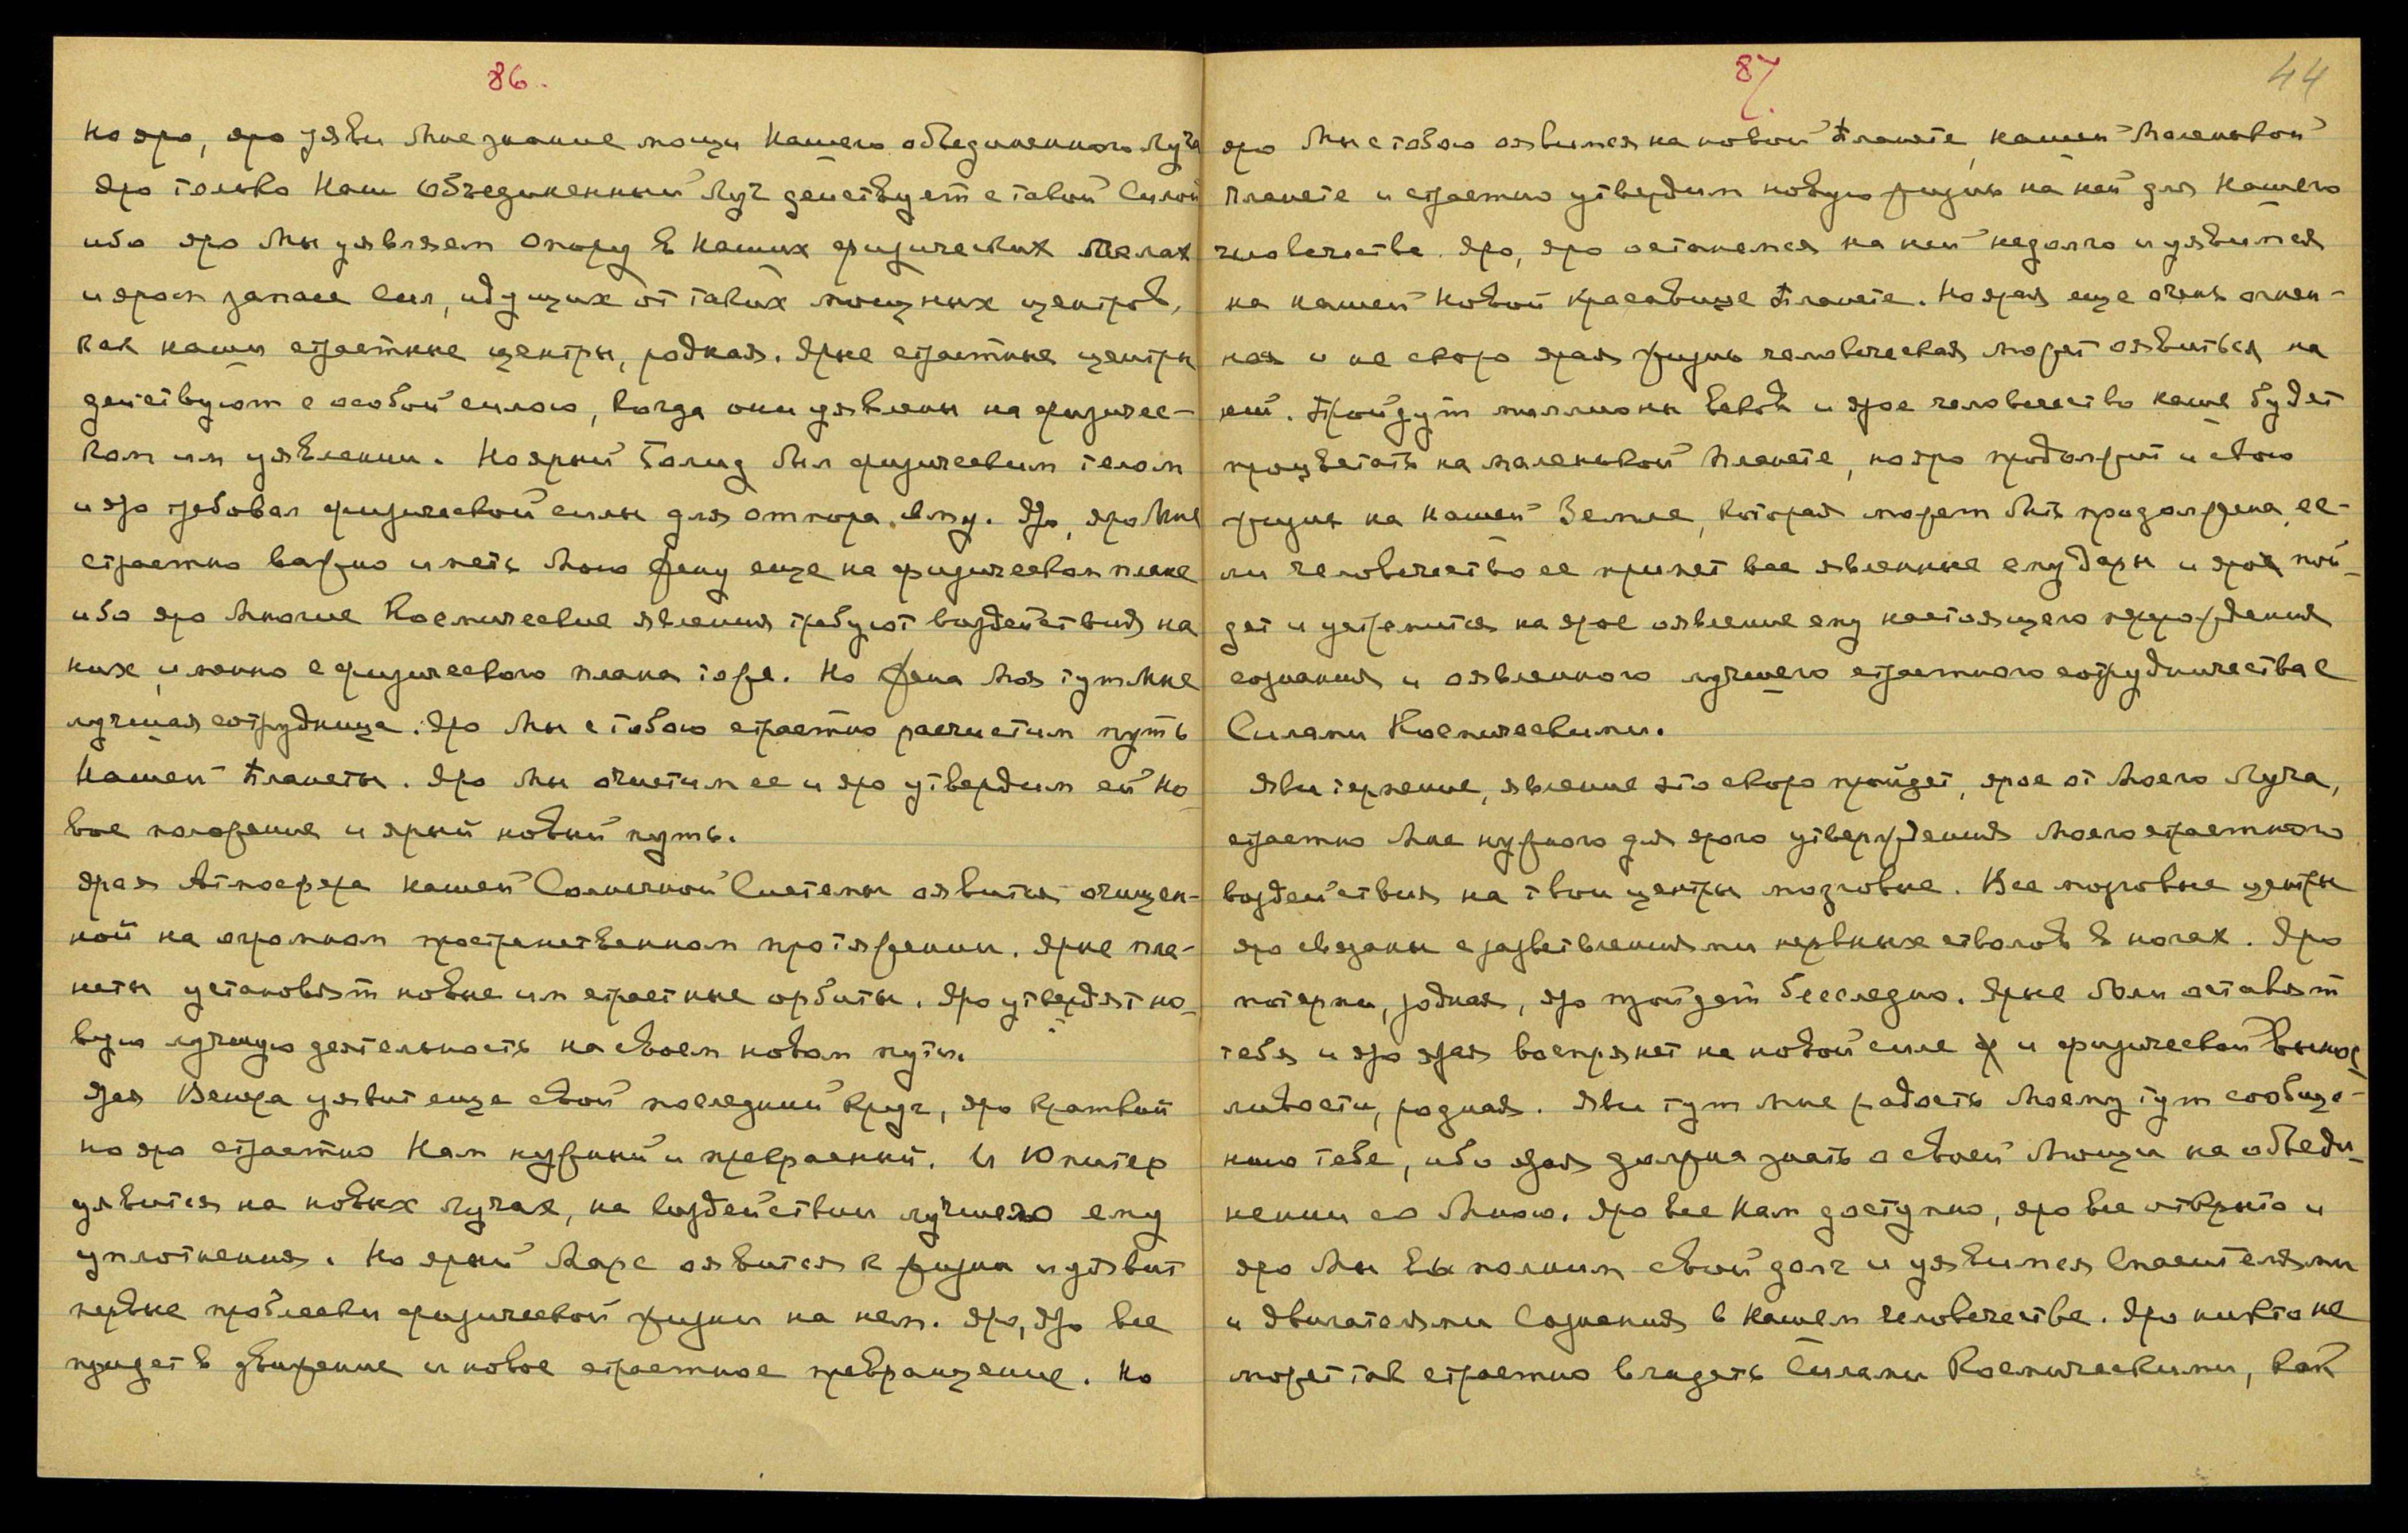 86.
Но яро, яро уяви Мне знание мощи Нашего объединенного Луча
Яро только Наш Объединенный Луч действует с такой Силой
ибо яро Мы уявляем Опору в Наших физических телах
и яром запасе Сил, идущих от таких мощных центров,
как наши страстные центры, родная. Ярые страстные центры
действуют с особой силою, когда они уявлены на физичес-
ком им уявлении. Но ярый Болид был физическим телом
и яро требовал физической силы для отпора Ему. Яро, яро Мне
страстно важно иметь Мою Жену еще на физическом плане
ибо яро Многие Космические явления требуют воздействия на
них именно с физического плана тоже. Но Жена Моя тут Мне
лучшая сотрудница. Яро Мы с тобою страстно расчистим путь
Нашей Планеты. Яро Мы очистим ее и яро утвердим ей но-
вое положение и ярый новый путь.
Ярая Атмосфера Нашей Солнечной Системы оявится очищен-
ной на огромном пространственном протяжении. Ярые пла-
неты установят новые им страстные орбиты. Яро утвердят но-
вую лучшую деятельность на своем новом пути.
Ярая Венера уявит еще свой последний круг, яро краткий
но яро страстно Нам нужный и прекрасный. И Юпитер
уявится на новых лучах, на воздействии лучшего ему
уплотнения. Но ярый Марс оявится к жизни и уявит
первые проблески физической жизни на нем. Яро, яро все
придет в движение и новое страстное превращение. Но
87.
44
яро Мы с тобою оявимся на новой Планете, нашей Маленькой
Планете и страстно утвердим новую жизнь на ней для Нашего
человечества. Яро, яро останемся на ней недолго и уявимся
на нашей Новой Красавице Планете. Но ярая еще очень огнен-
ная и не скоро ярая жизнь человеческая может оявиться на
ней. Пройдут миллионы веков и ярое человечество наше будет
процветать на маленькой Планете, но яро продолжит и свою
жизнь на Нашей Земле, которая может быть продолжена, ес-
ли человечество ее примет все явленные ему Дары и ярое пой-
дет и устремится на ярое оявление ему настоящего перерождения
сознания и оявленного лучшего страстного сотрудничества с
Силами Космическими.
Яви терпение, явление это скоро пройдет, ярое от Моего Луча,
страстно Мне нужного для ярого утверждения Моего страстного
воздействия на твои центры мозговые. Все мозговые центры
яро связаны с разветвлениями нервных стволов в ногах. Яро
потерпи, родная, яро пройдет бесследно. Ярые боли оставят
тебя и яро ярая воспрянет на новой силе и физической вынос-
ливости, родная. Яви тут мне радость Моему тут сообще-
нию тебе, ибо ярая должна знать о своей Мощи на объеди-
нении со Мною. Яро все Нам доступно, яро все открыто и
яро Мы выполним свой долг и уявимся Спасителями
и двигателями Сознания в Нашем человечестве. Яро никто не
может так страстно владеть Силами Космическими, как